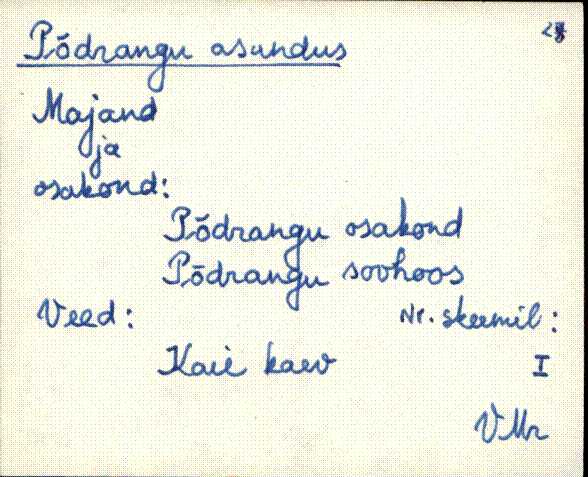 Põdrangu asundus
Majand
ja
osakond:
Põdrangu osakond
Põdrangu sovhoos
Veed: Nr. skeemil:
Kaie kaev I
VMr